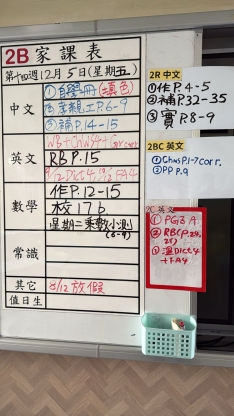 2B 家課表
第十四週12月5日(星期五)
中文
①自學冊(填色)
②亲親工P.6-9
③補P.14-15
英文
NB + Chws4 + Gor corr
RB P.15
9/12 Dict4, 12/12 FA4
數學
作P.12-15
校17b
星期二乘數小測
(6-9)
常識
其它
8/12放假
值日生
2R 中文
①作P.4-5
②補P.32-35
③實P.8-9
2BC 英文
①Chws P.1-7 corr.
②PP P.9
英文
①PG3 A
②RB(P.24,
25)
③溫Dict4
+FA4